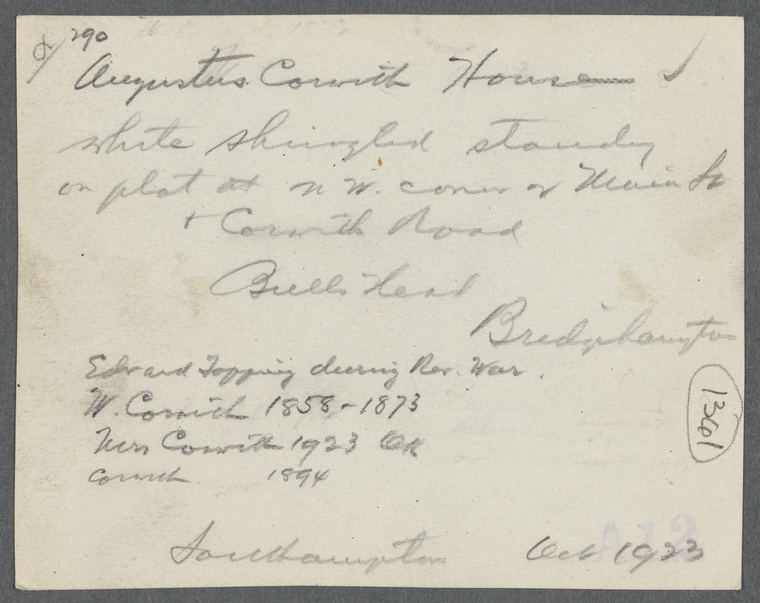 290
Augustus Corwith House
white shingled standing
on plat at N.W. corner of Main St
+ Corwith Road
Bulls Head
Bridgehampton
Edward Topping during Rev. War.
W. Corwith 1858-1873
Mrs Corwith 1923 OK
Corwith 1894
1361
Southampton Oct 1923
A12